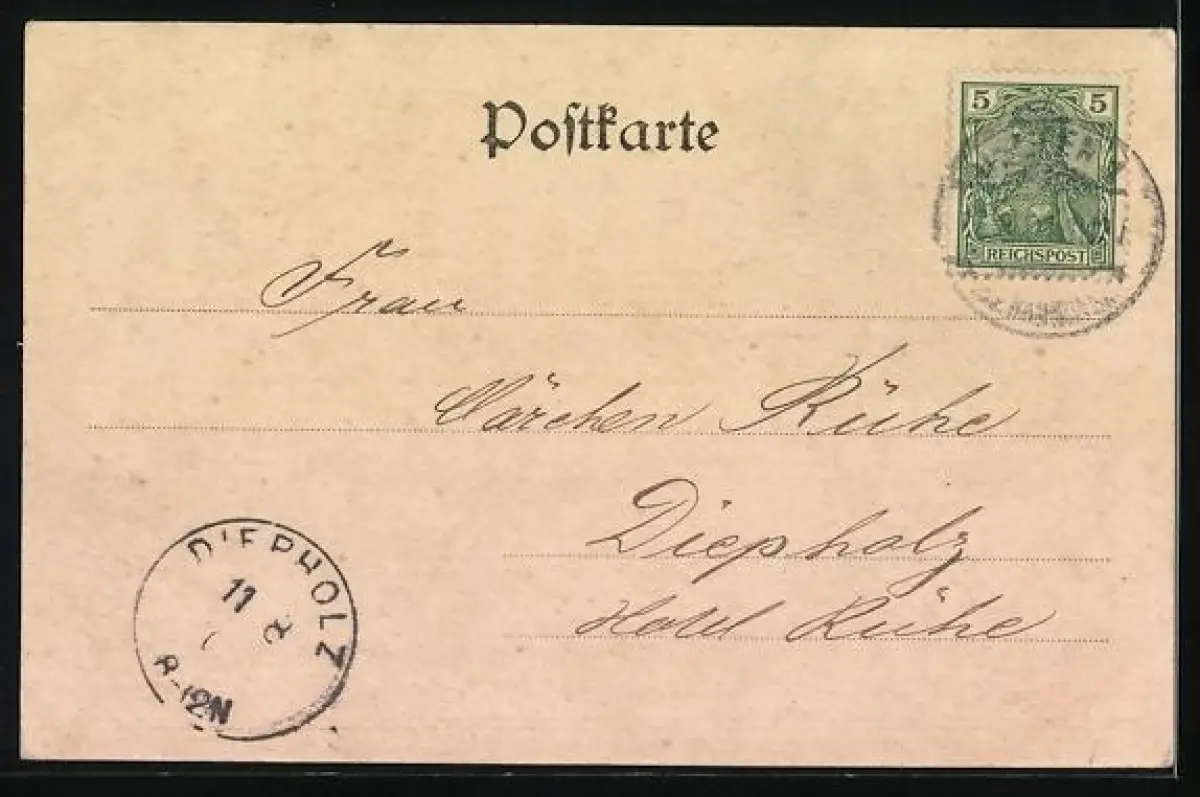 Postkarte
5 5
REICHSPOST
Frau
Klärchen Rühe
Diepholz
Hotel Rühe
DIEPHOLZ
11
8-12N